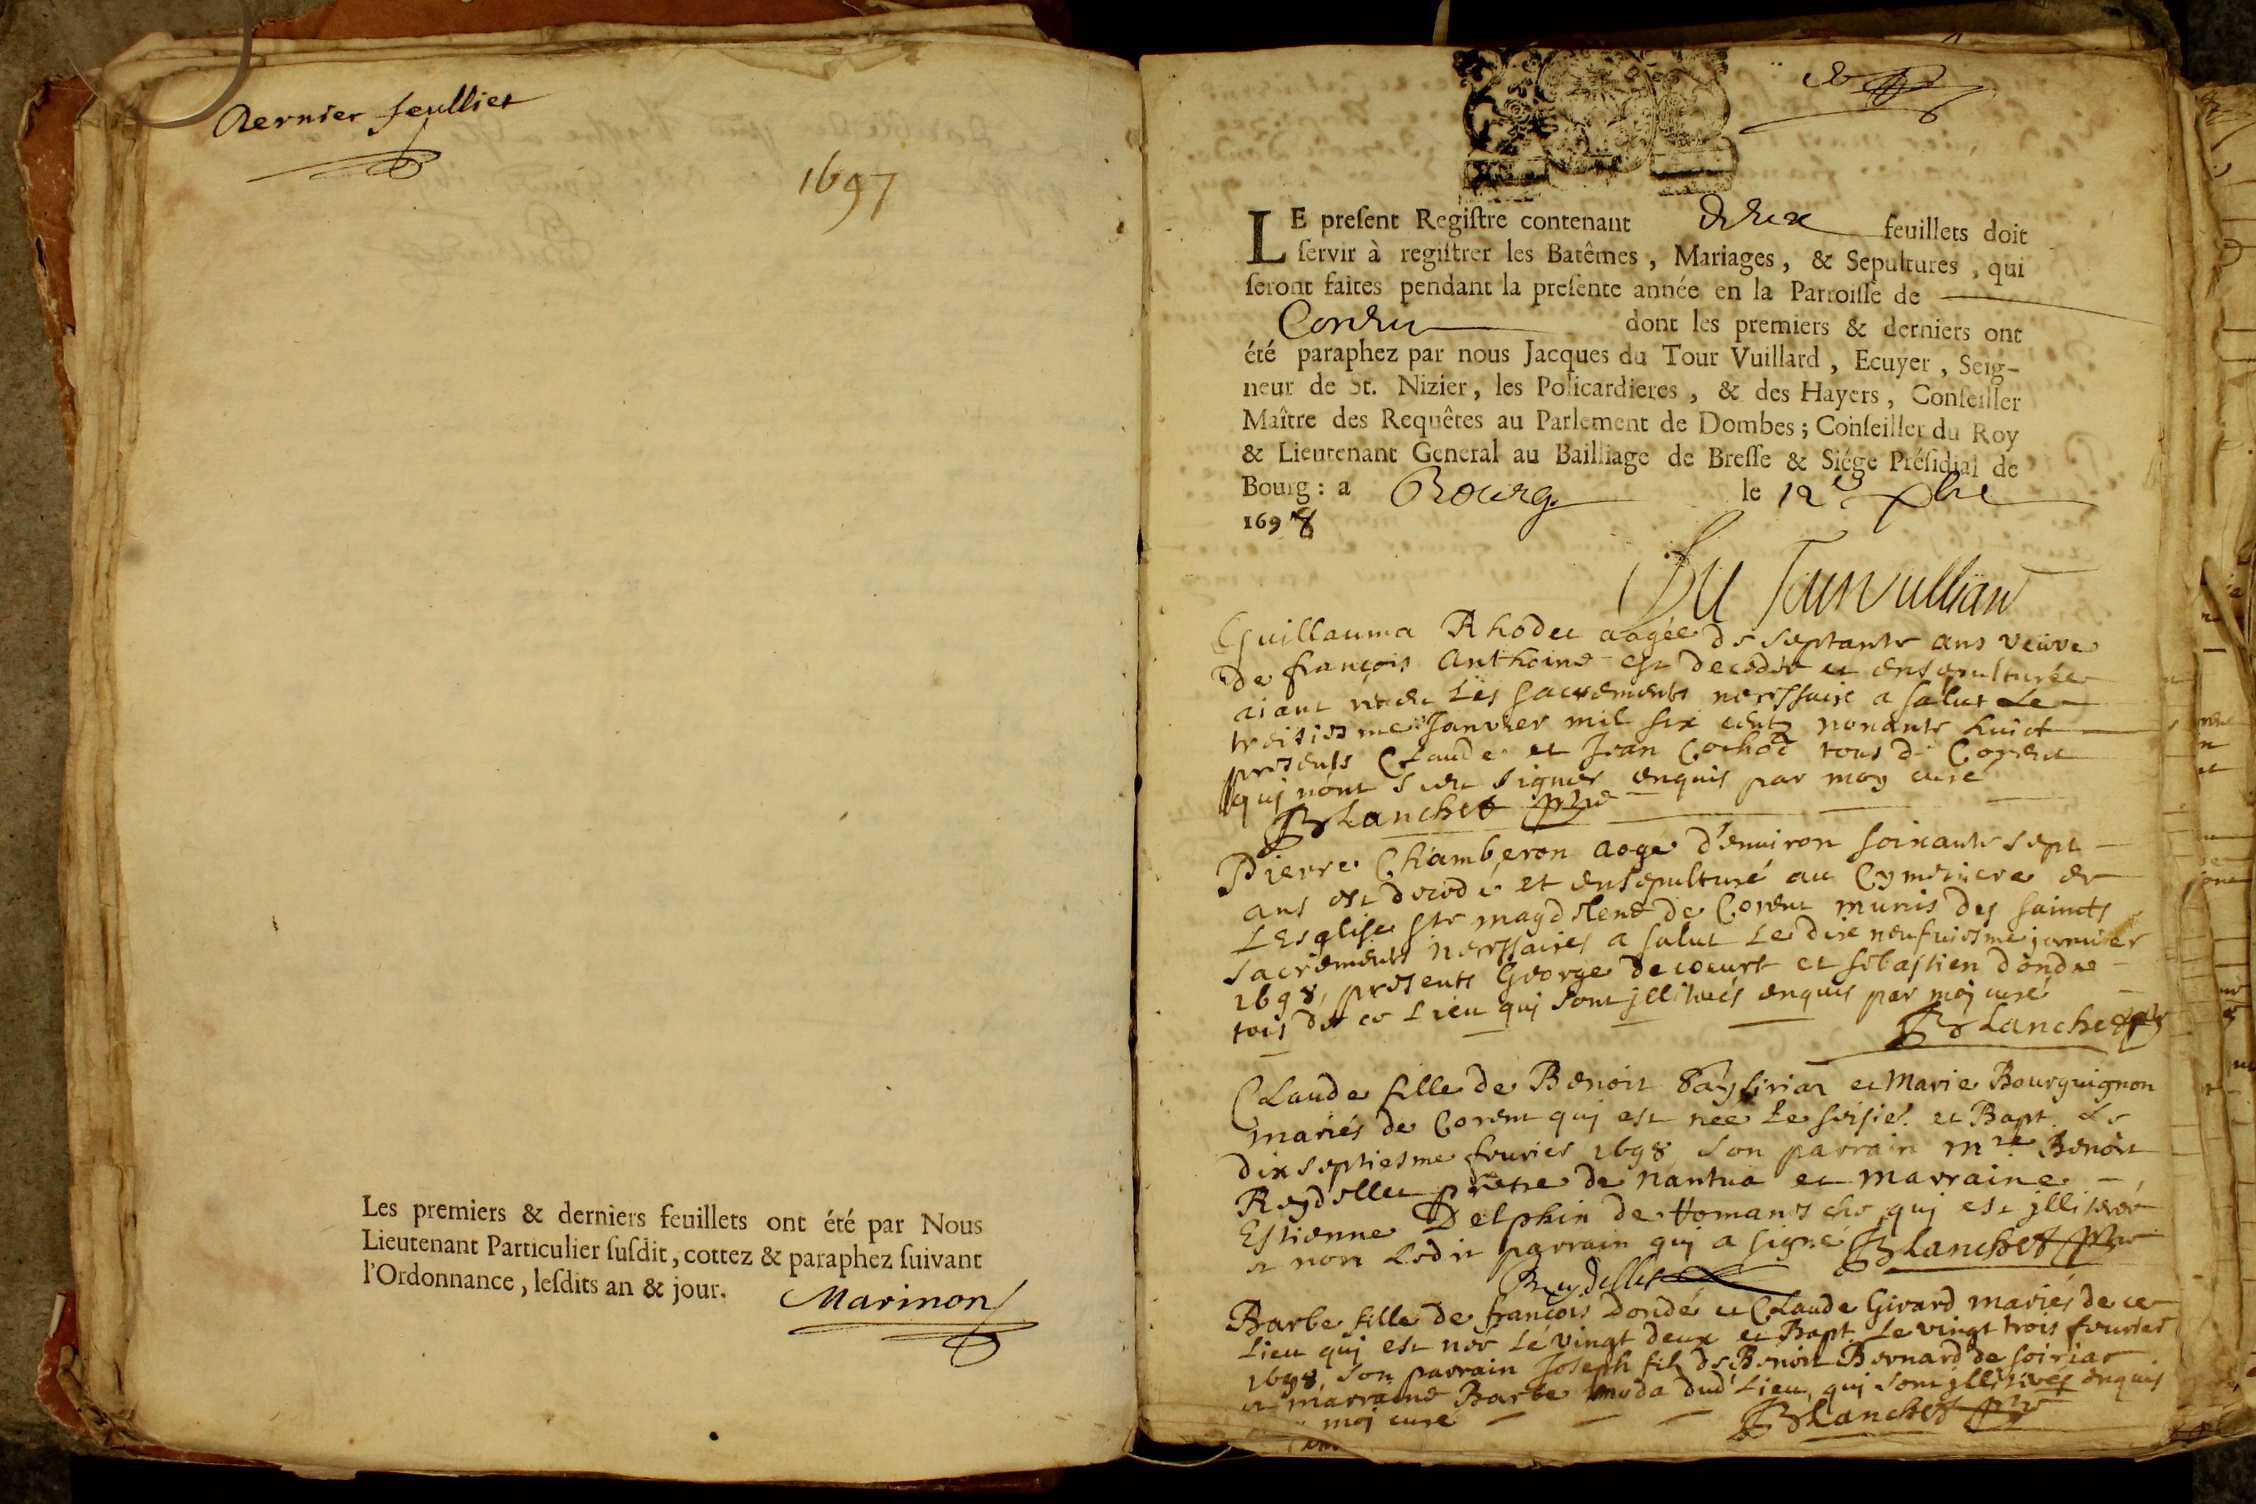 Dernier feulliet
1697
Les premiers & derniers feuillets ont été par Nous
Lieutenant Particulier ſuſdit, cottez & paraphez ſuivant
l'Ordonnance, leſdits an & jour.
Marinon
LE preſent Regiſtre contenant feuillets doit
ſervir à regiſtrer les Batêmes, Mariages, & Sepultures, qui
ſeront faites pendant la preſente année en la Parroiſſe de
Corent dont les premiers & derniers ont
été paraphez par nous Jacques du Tour Vuillard, Ecuyer, Seig-
neur de St. Nizier, les Policardieres, & des Hayers, Conſeiller
Maître des Requêtes au Parlement de Dombes; Conſeiller du Roy
& Lieutenant General au Bailliage de Breſſe & Siége Préſidial de
Bourg: a Bourg le 12e xbre
169
Du Tourvulliard
Guillauma Rhodet aagée de septante ans veuve
de françois Anthoine est decedée et ensepulturée
aiant receu les sacrements necessaire a salut Le
troisiesme Janvier mil six centz nonante huict
presents Claude et Jean Cochod tous de Corent
quj n'ont sceu signer enquis par moy curé
BLanchet ptre
Pierre Chamberon aagé d'enuiron soixante sept
ans est decedé et ensepulturé au Cymetiere de
LEsglise ste magdelene de Corent munis des saincts
sacrements necessaires a salut Le dix neufuiesme januier
1698, presents George decoeurt et sebastien dondne
tois de ce Lieu quj sont jlliterés enquis par moj curé
BLanchet ptre
CLaude fille de Benoit et Marie Bourguignon
mariés de Corent quj est née Le seisie. et Bapt. Le
dix septiesme feurier 1698 son parrain mre Benoit
Reydellet pretre de Nantua et marraine
Estienne Delphin de quj est jlliterée
et non Ledit parrain quj a signé BLanchet ptre
Reydellet
Barbe fille de françois Dondé et CLaude Girard mariés de ce
Lieu quj est née Le vingt deux et Bapt. Le vingt trois feurier
1698, son parrain Joseph fils de Benoit Bernard de soiria
et marraine Barbe dud Lieu, quj sont jlliterés enquis
moj curé BLanchet ptre